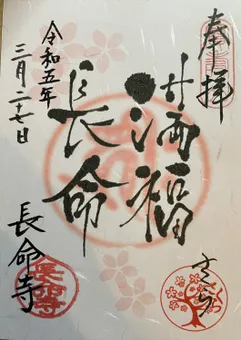 奉拝
満福
長命
令和五年
三月二十七日
長命寺
さくら